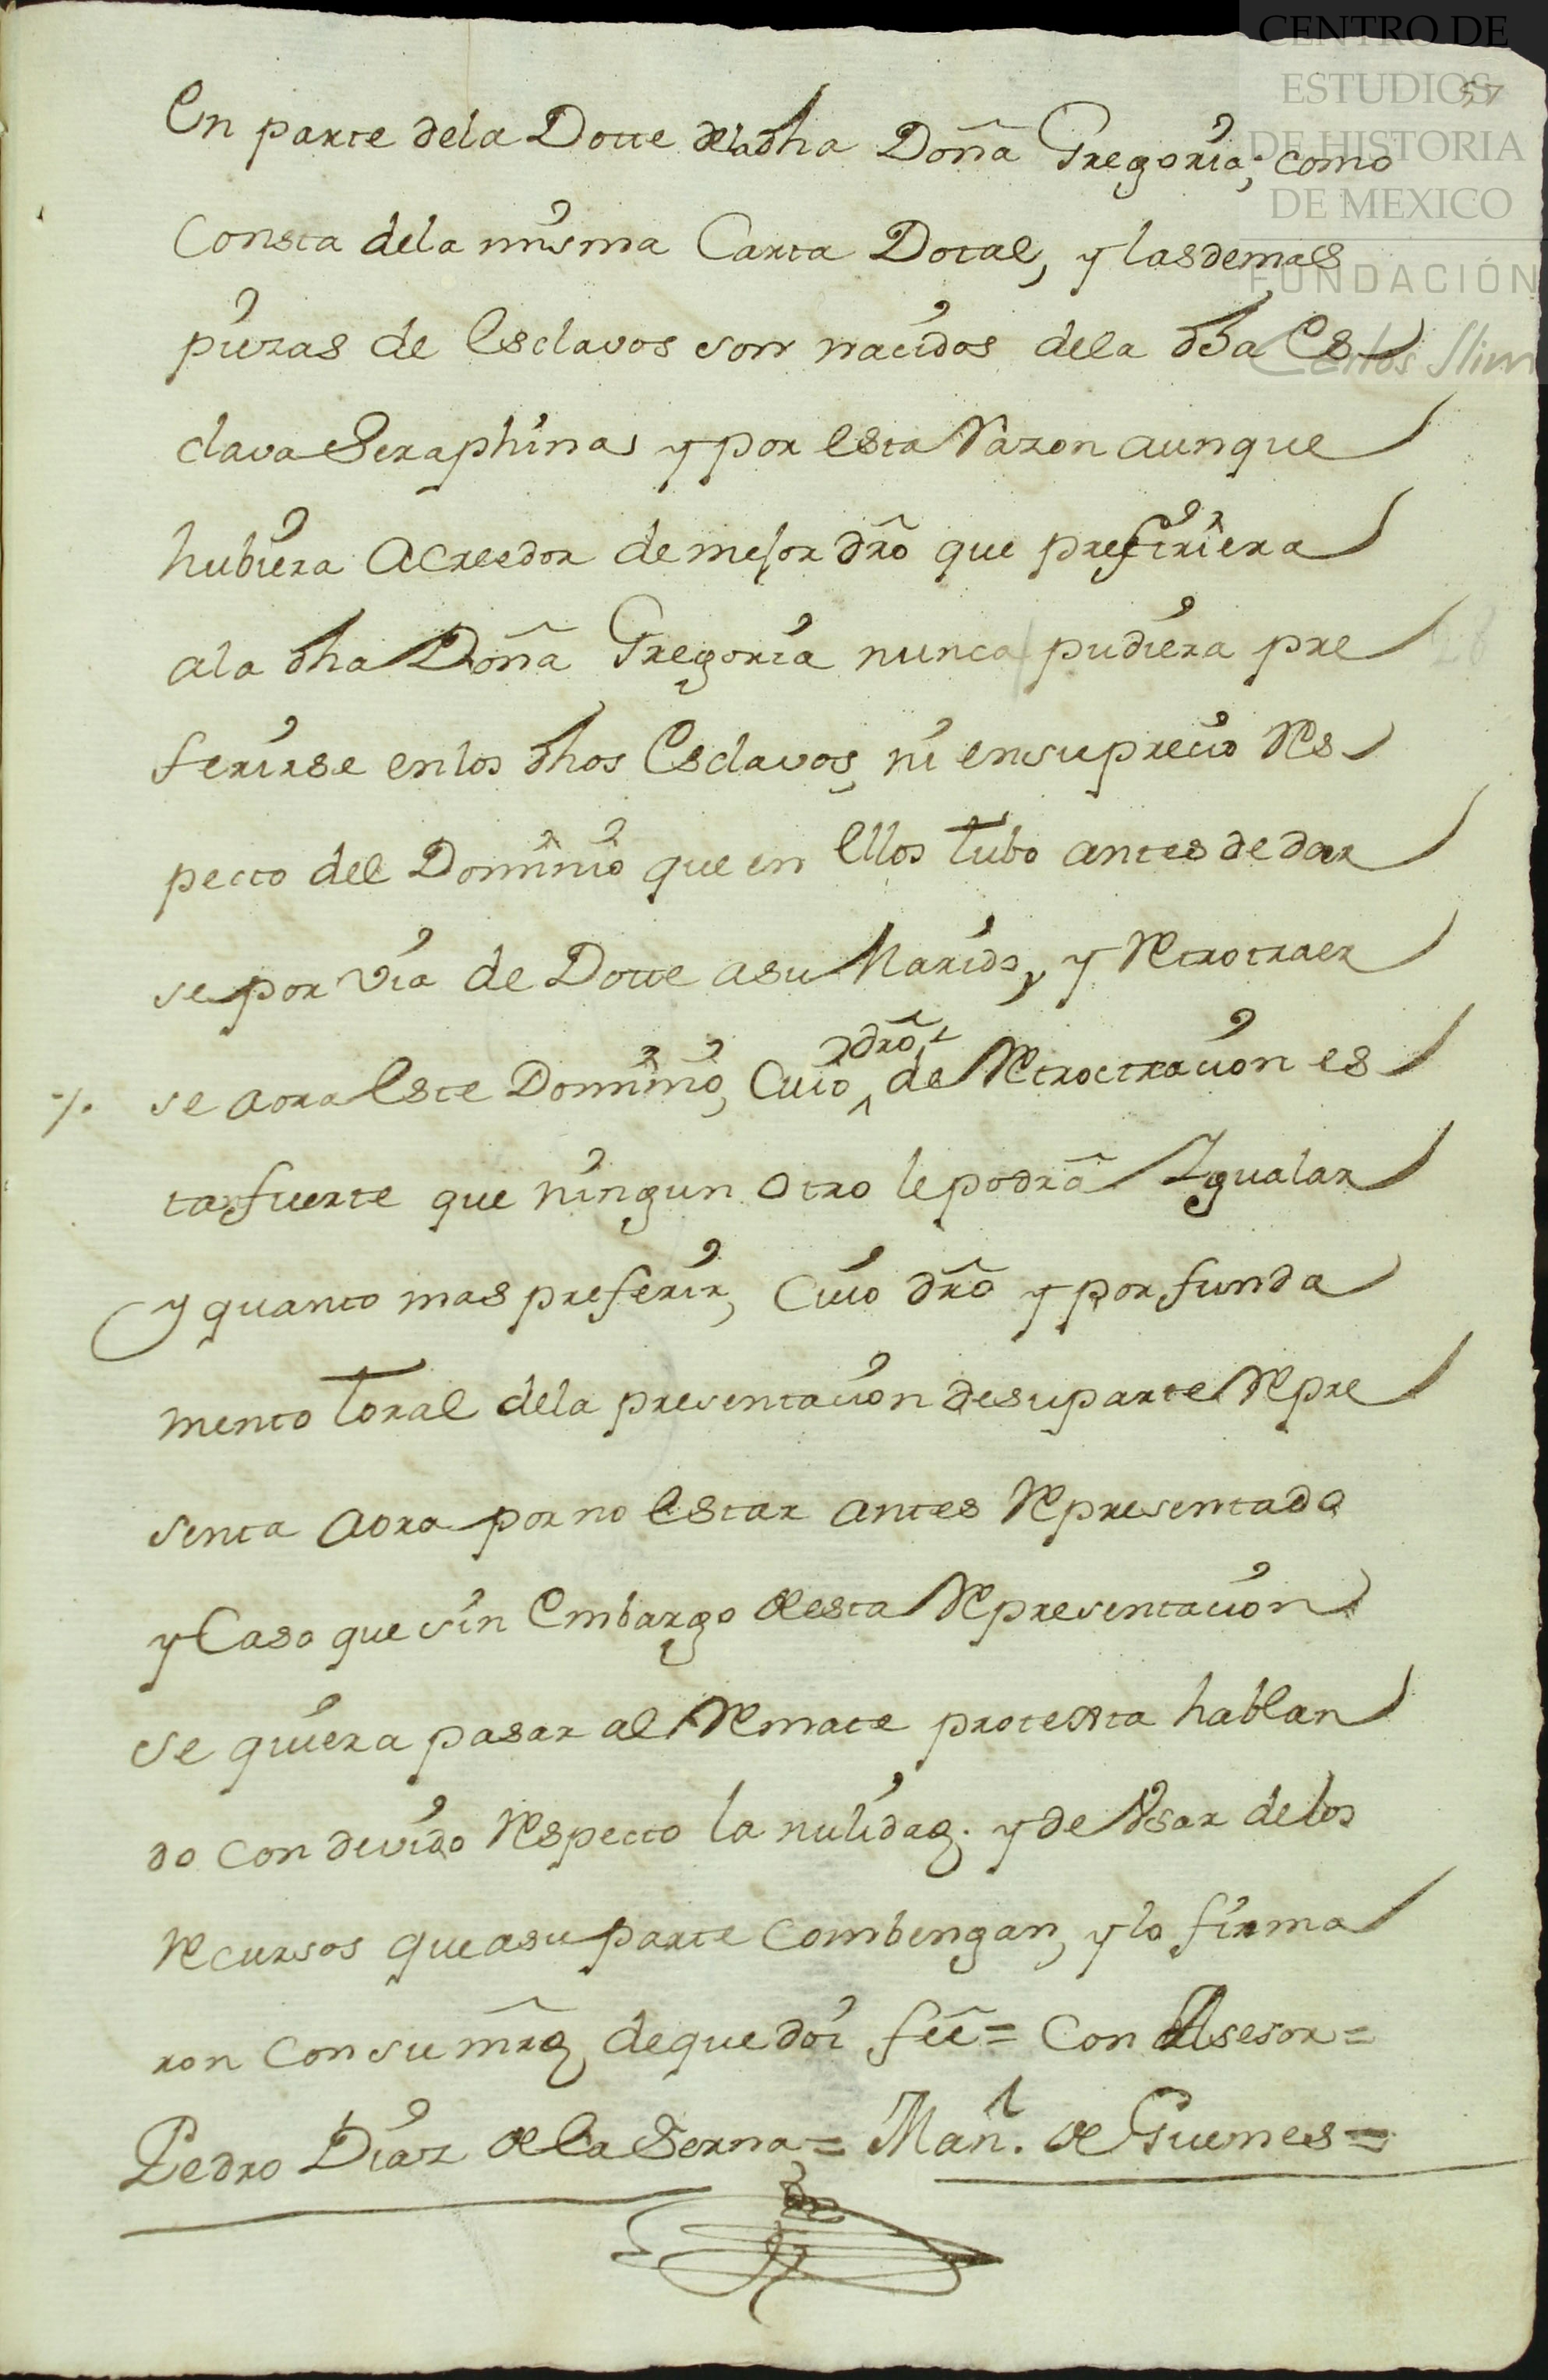 CENTRO DE
ESTUDIOS
DE HISTORIA
DE MEXICO
FUNDACIÓN
Carlos Slim
57
En parte dela Dotte dela dha Doña Gregoria; como
Consta dela misma Carta Dotal, y lasdemas
piezas de Esclavos son nacidos dela dha Es
clava Seraphina, y por esta Razon aunque
hubiera Acreedor de mejor dro que prefiriera
ala dha Doña Gregoria nunca pudiera pre
ferirse enlos dhos Esclavos, ni ensuprecio Res
pecto del Dominio que en Ellos tubo antes de dar
se por via de Dotte asu Marido, y Retrotraer
se aora Este Dominio, Cuio dro de Retroctracion es
tanfuerte que ningun otro lepodrá Igualar
y quanto mas preferir, Cuio dro y por funda
mento toral dela presentacion desuparte Repre
senta aora por no Estar antes Representado
y Caso que sin Embargo desta Representacion
se quiera pasar al Remate protesta hablan
do con devido Respecto la nulidad. y de Vsar delos
Recursos queasuparte Combengan, y lo firma
ron con su mrd dequedoi feé = Con Asesor =
Pedro Diaz dela Serna = Man.l de Guemes =